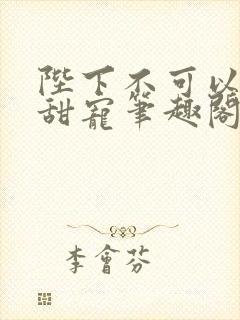 陛下不可以
甜寵筆趣閣
李會芬